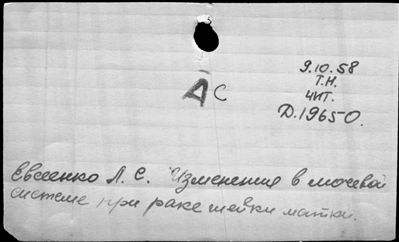 9.10.58
Т.Н.
ЧИТ.
АС
Д.19650.
Евсеенко Л. С. Изменения в мочевой
системе при раке шейки матки.